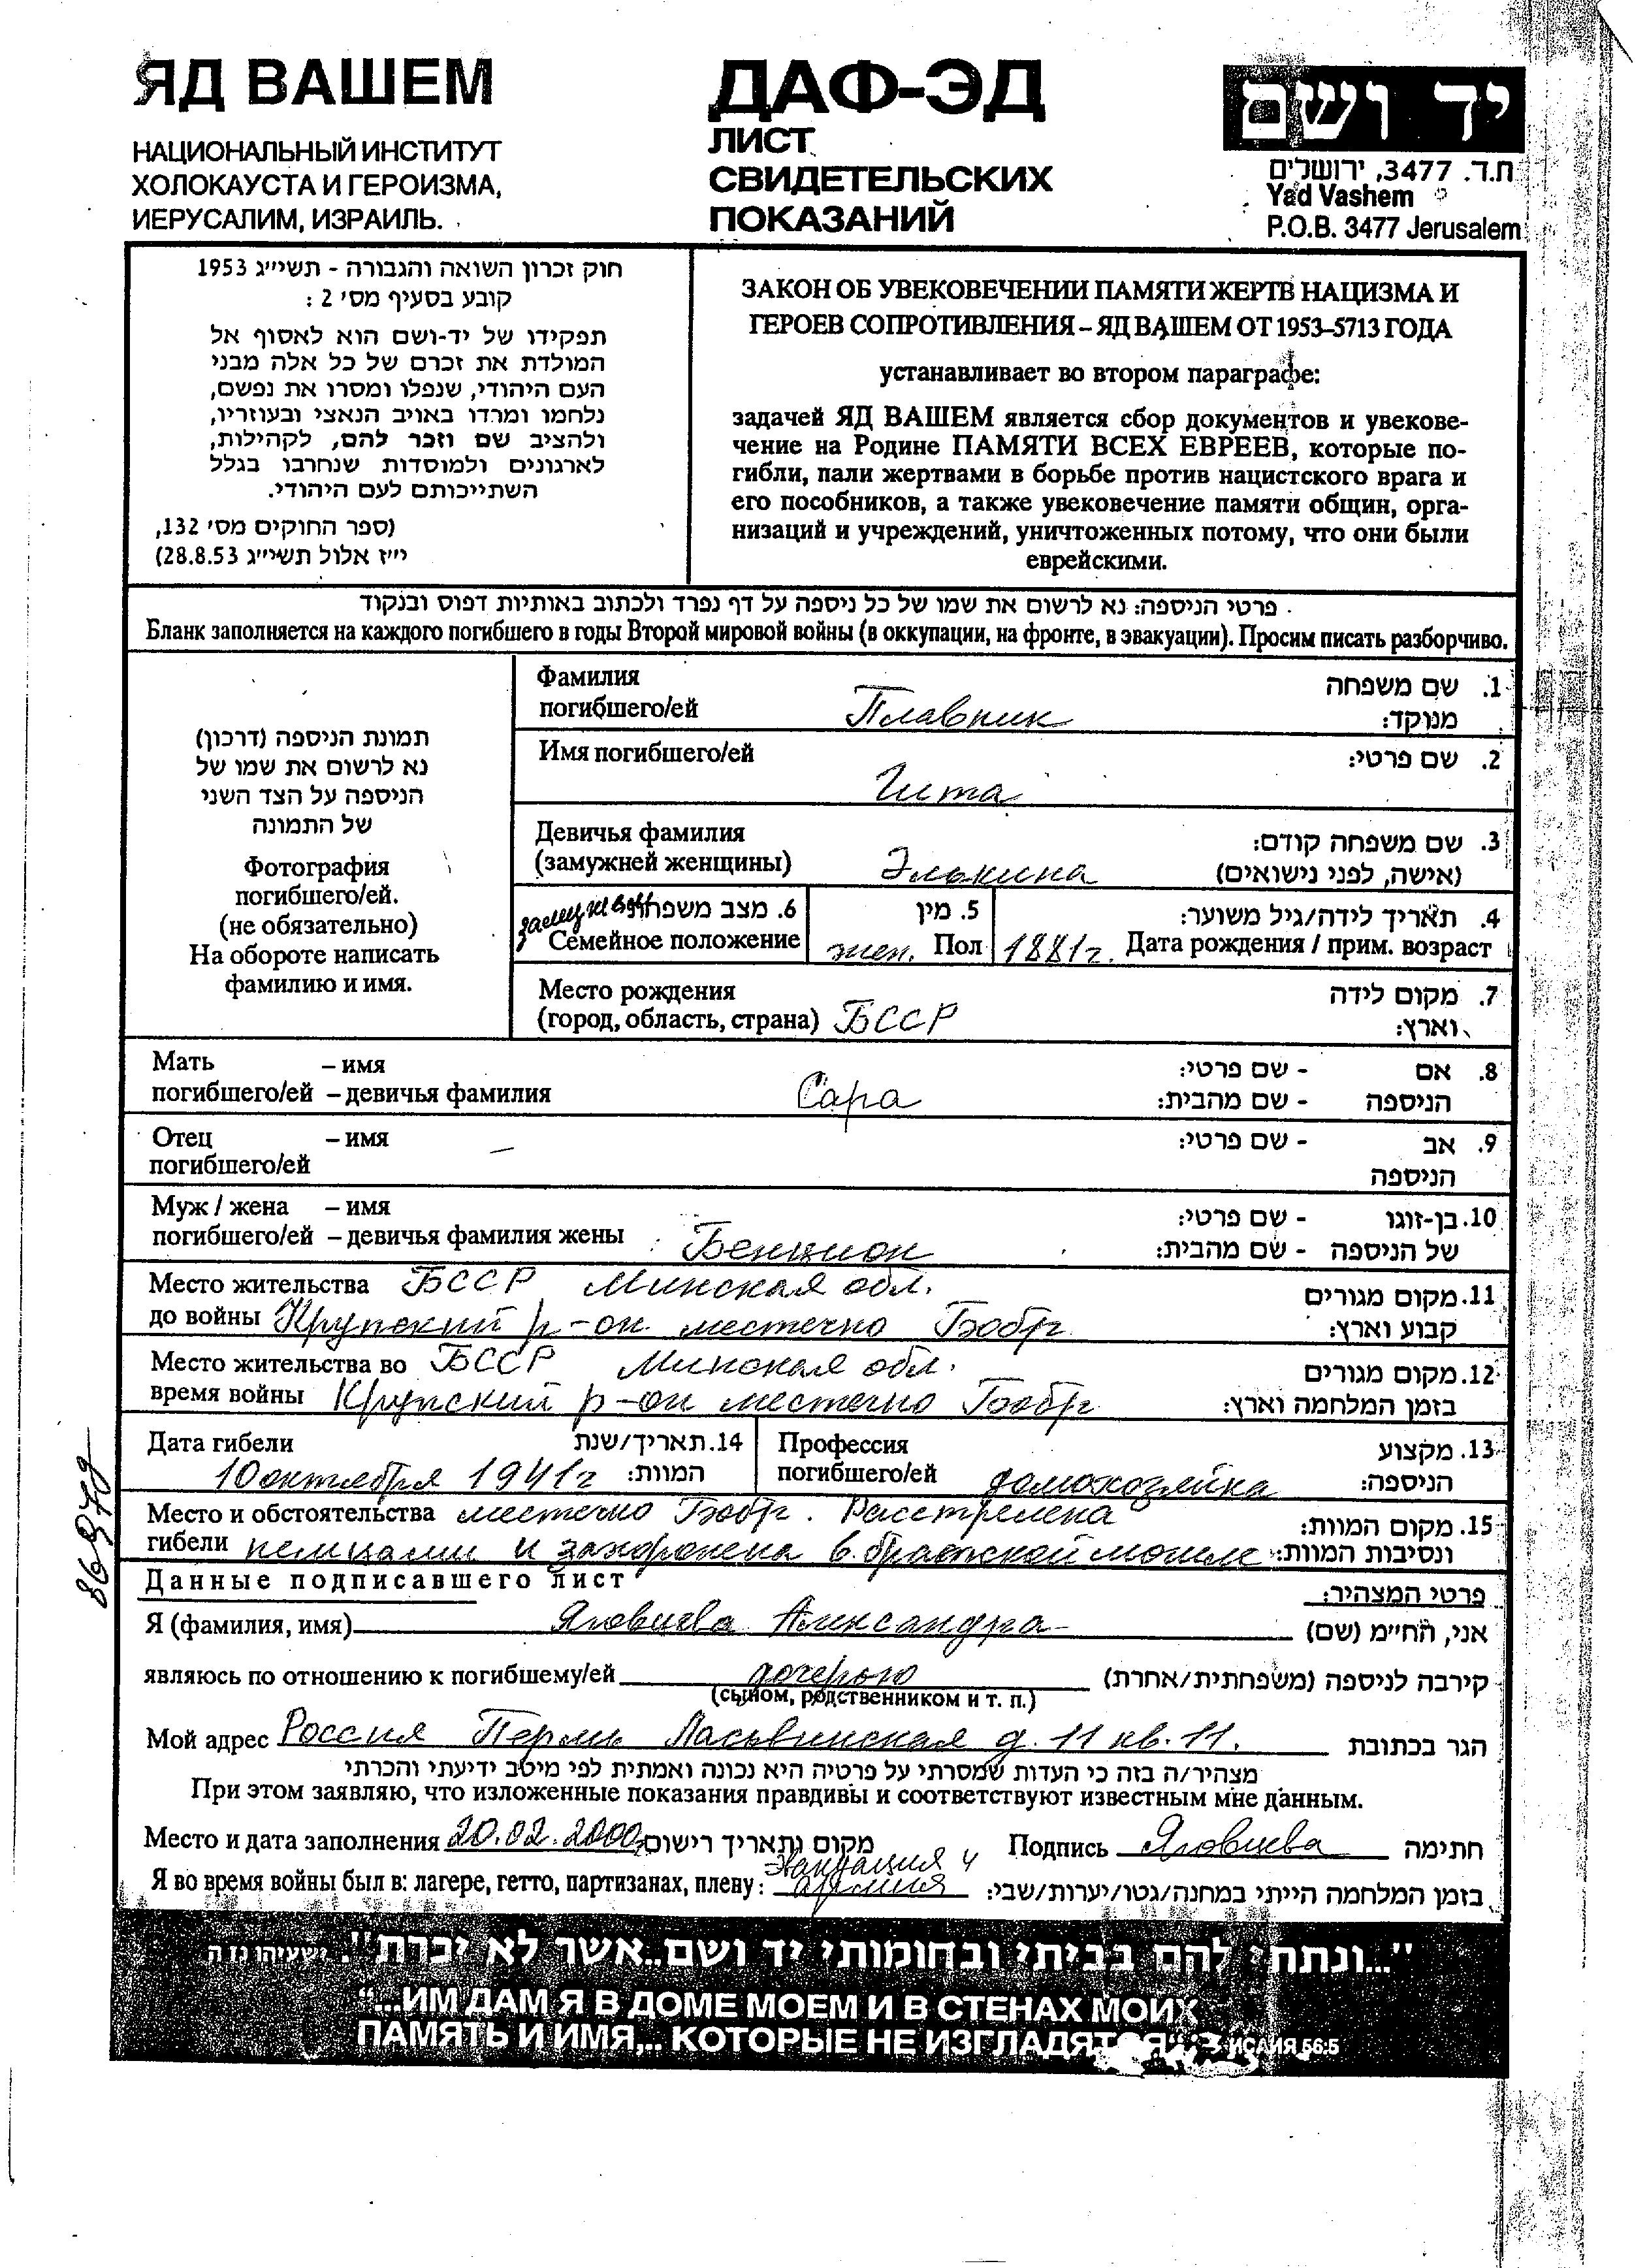 ЯД ВАШЕМ
НАЦИОНАЛЬНЫЙ ИНСТИТУТ
ХОЛОКАУСТА И ГЕРОИЗМА,
ИЕРУСАЛИМ, ИЗРАИЛЬ.
ДАФ-ЭД
ЛИСТ
СВИДЕТЕЛЬСКИХ
ПОКАЗАНИЙ
יד ושם
ת.ד. 3477, ירושלים
Yad Vashem
P.O.B. 3477 Jerusalem
חוק זכרון השואה והגבורה - תשי״ג 1953
קובע בסעיף מס׳ 2 :
תפקידו של יד-ושם הוא לאסוף אל
המולדת את זכרם של כל אלה מבני
העם היהודי, שנפלו ומסרו את נפשם,
נלחמו ומרדו באויב הנאצי ובעוזריו,
ולהציב שם וזכר להם, לקהילות,
לארגונים ולמוסדות שנחרבו בגלל
השתייכותם לעם היהודי.
(ספר החוקים מס׳ 132,
י״ז אלול תשי״ג 28.8.53)
ЗАКОН ОБ УВЕКОВЕЧЕНИИ ПАМЯТИ ЖЕРТВ НАЦИЗМА И
ГЕРОЕВ СОПРОТИВЛЕНИЯ – ЯД ВАШЕМ ОТ 1953–5713 ГОДА
устанавливает во втором параграфе:
задачей ЯД ВАШЕМ является сбор документов и увекове-
чение на Родине ПАМЯТИ ВСЕХ ЕВРЕЕВ, которые по-
гибли, пали жертвами в борьбе против нацистского врага и
его пособников, а также увековечение памяти общин, орга-
низаций и учреждений, уничтоженных потому, что они были
еврейскими.
פרטי הניספה: נא לרשום את שמו של כל ניספה על דף נפרד ולכתוב באותיות דפוס ובנקוד
Бланк заполняется на каждого погибшего в годы Второй мировой войны (в оккупации, на фронте, в эвакуации). Просим писать разборчиво.
תמונת הניספה (דרכון)
נא לרשום את שמו של
הניספה על הצד השני
של התמונה
Фотография
погибшего/ей.
(не обязательно)
На обороте написать
фамилию и имя.
Фамилия 1. שם משפחה
погибшего/ей Плавник מנוקד:
Имя погибшего/ей 2. שם פרטי:
Гита
Девичья фамилия 3. שם משפחה קודם:
(замужней женщины) Элькина (אישה, לפני נישואים)
замужняя 6. מצב משפחתי 5. מין 4. תאריך לידה/גיל משוער:
Семейное положение жен. Пол 1881г. Дата рождения / прим. возраст
Место рождения 7. מקום לידה
(город, область, страна) БССР וארץ:
Мать – имя 8. אם - שם פרטי:
погибшего/ей – девичья фамилия Сара הניספה - שם מהבית:
Отец – имя — 9. אב - שם פרטי:
погибшего/ей הניספה
Муж / жена – имя 10. בן-זוגו - שם פרטי:
погибшего/ей – девичья фамилия жены Бенцион של הניספה - שם מהבית:
Место жительства БССР Минская обл. 11. מקום מגורים
до войны Крупский р-он местечко Бобр קבוע וארץ:
Место жительства во БССР Минская обл. 12. מקום מגורים
время войны Крупский р-он местечко Бобр בזמן המלחמה וארץ:
Дата гибели 14. תאריך/שנת Профессия 13. מקצוע
10 октября 1941г המוות: погибшего/ей домохозяйка הניספה:
Место и обстоятельства местечко Бобр. Расстрелена 15. מקום המוות:
гибели немцами и захоронена в братской могиле ונסיבות המוות:
Данные подписавшего лист פרטי המצהיר:
Я (фамилия, имя) Яговцева Александра אני, הח״מ (שם)
являюсь по отношению к погибшему/ей дочерью קירבה לניספה (משפחתית/אחרת)
(сыном, родственником и т. п.)
Мой адрес Россия Пермь Ласьвинская д. 11 кв. 11. הגר בכתובת
מצהיר/ה בזה כי העדות שמסרתי על פרטיה היא נכונה ואמתית לפי מיטב ידיעתי והכרתי
При этом заявляю, что изложенные показания правдивы и соответствуют известным мне данным.
Место и дата заполнения 20.02.2000 מקום ותאריך רישום Подпись Яговцева חתימה
Я во время войны был в: лагере, гетто, партизанах, плену: эвакуация и армия בזמן המלחמה הייתי במחנה/גטו/יערות/שבי:
86978
"...ונתתי להם בביתי ובחומותי יד ושם...אשר לא יכרת". ישעיהו נו ה
“...ИМ ДАМ Я В ДОМЕ МОЕМ И В СТЕНАХ МОИХ
ПАМЯТЬ И ИМЯ,.. КОТОРЫЕ НЕ ИЗГЛАДЯТСЯ“ ИСАИЯ 56:5